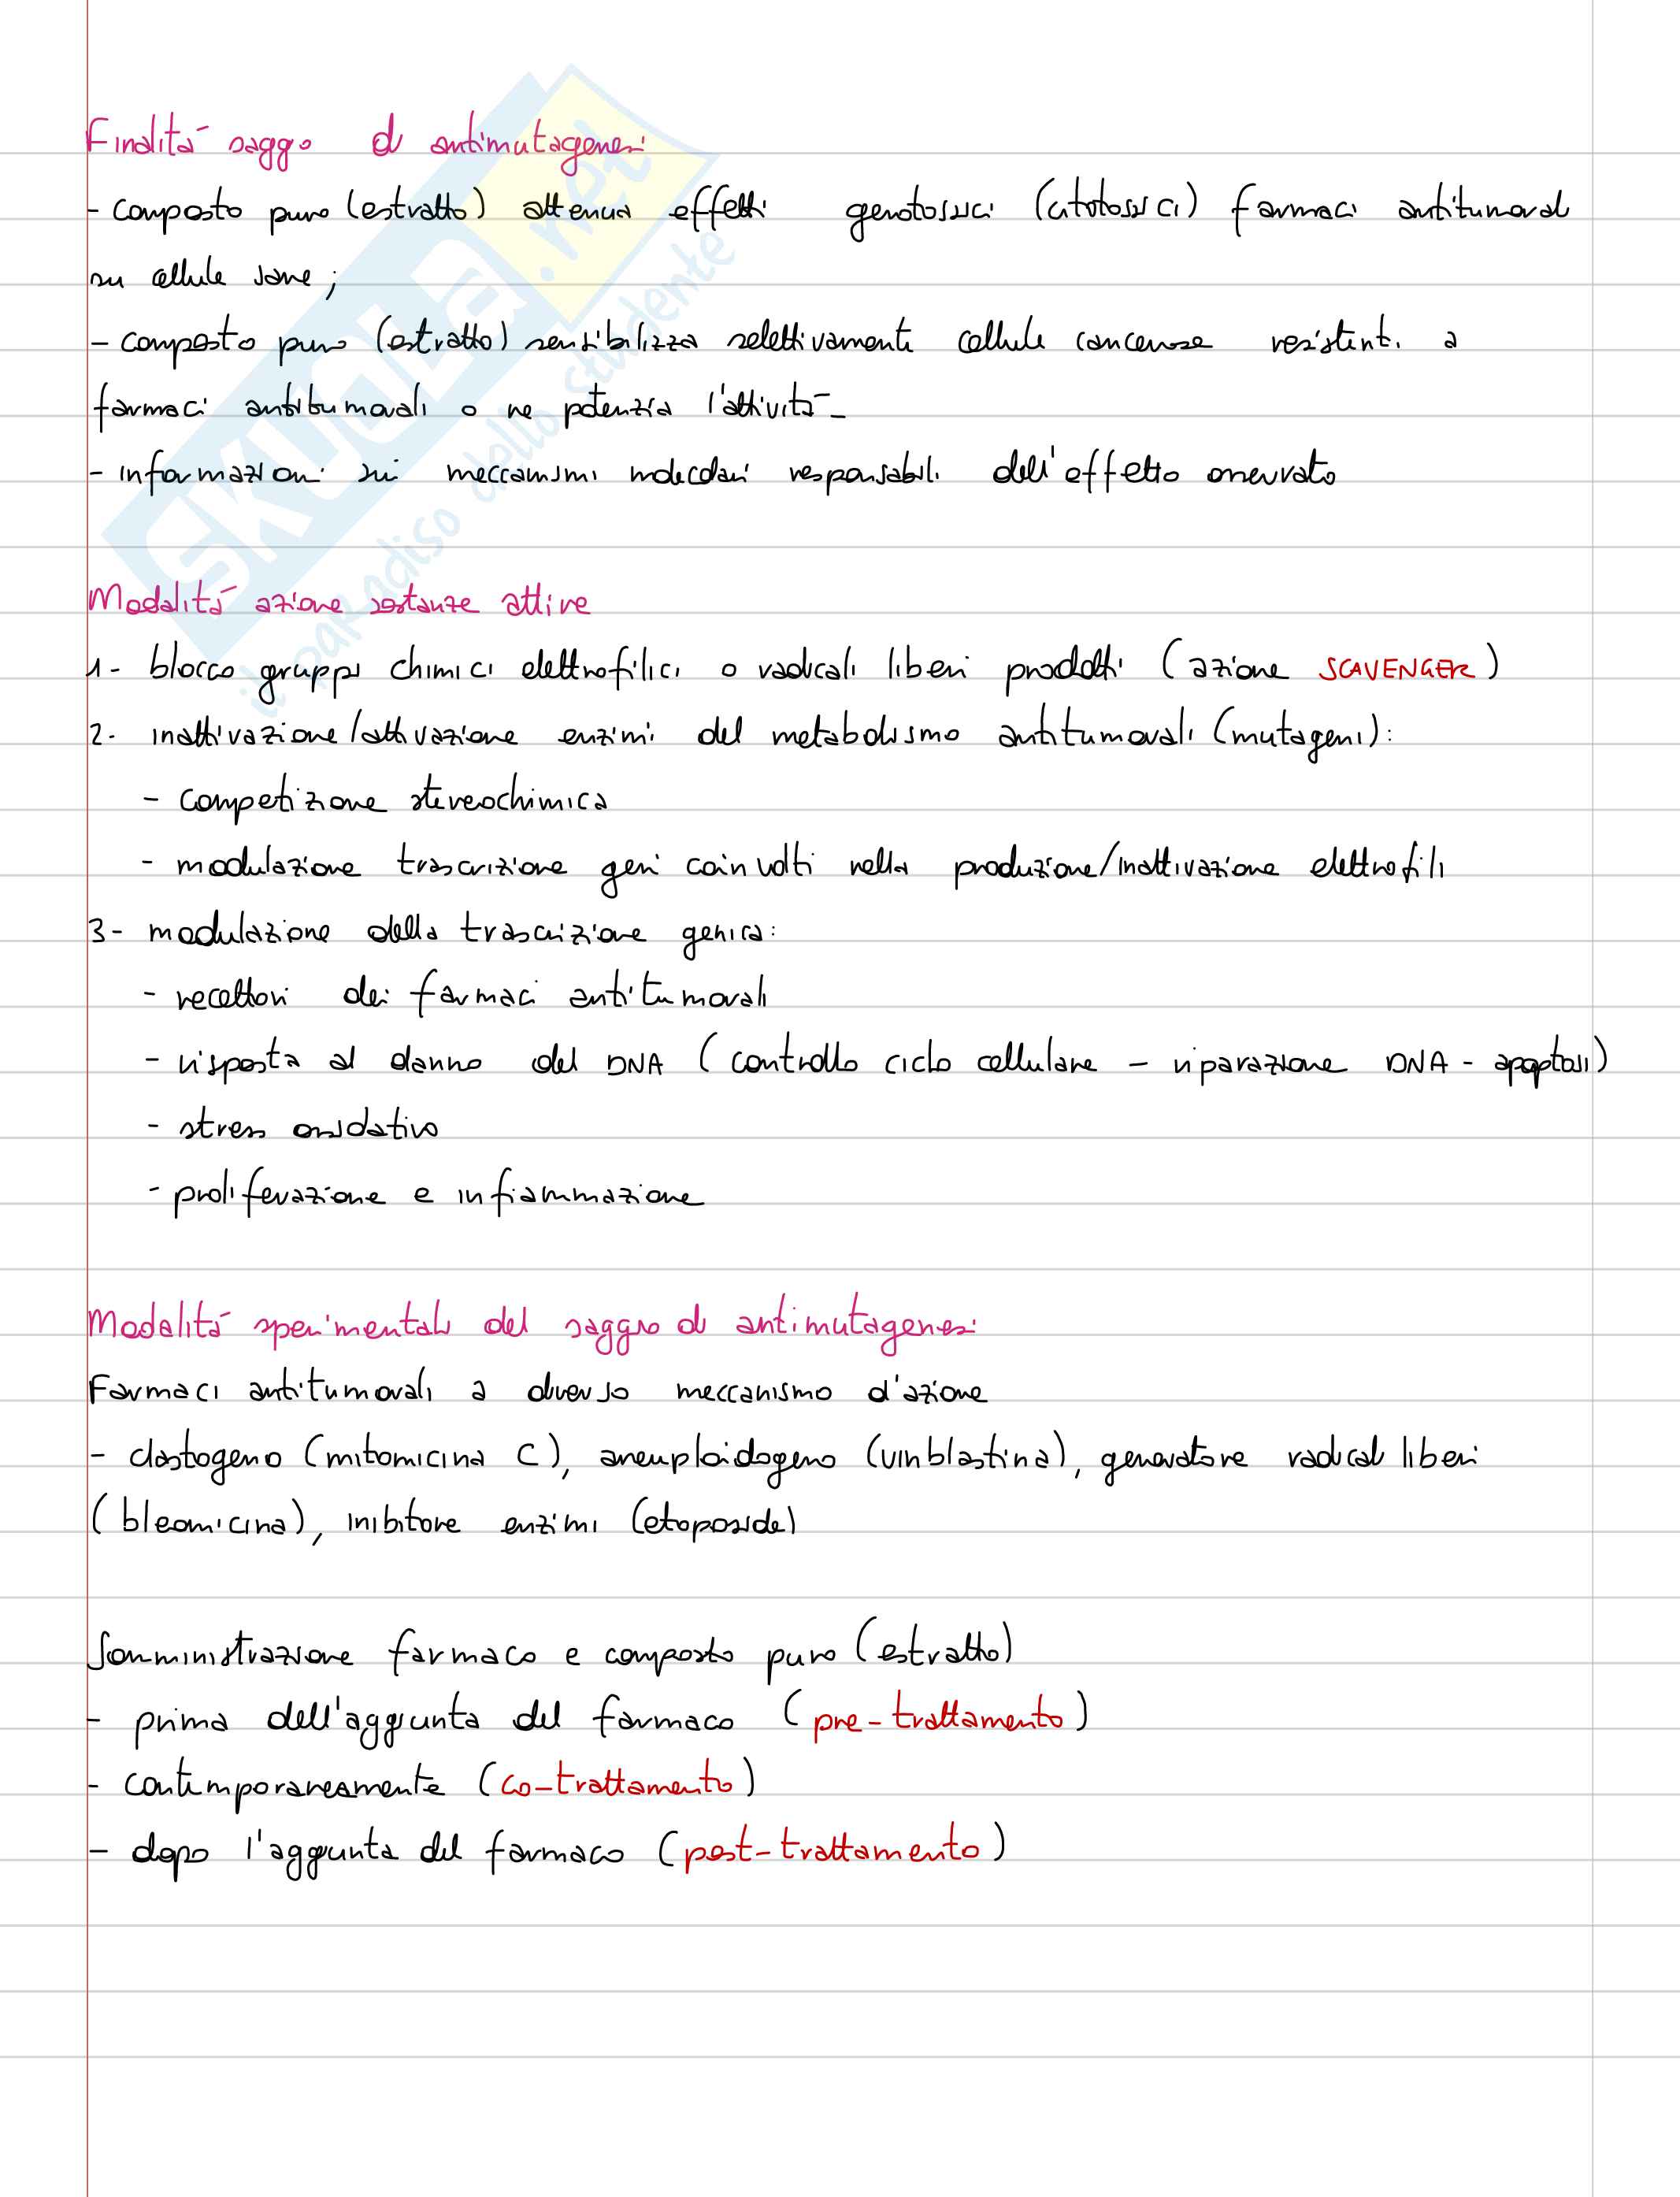 Finalità saggio di antimutagenesi
- composto puro (estratto) attenua effetti genotossici (citotossici) farmaci antitumorali
su cellule sane;
- composto puro (estratto) sensibilizza selettivamente cellule cancerose resistenti a
farmaci antitumorali o ne potenzia l'attività
- informazioni sui meccanismi molecolari responsabili dell'effetto osservato
Modalità azione sostanze attive
1- blocco gruppi chimici elettrofilici o radicali liberi prodotti (azione SCAVENGER)
2- inattivazione/attivazione enzimi del metabolismo antitumorali (mutageni):
- competizione stereochimica
- modulazione trascrizione geni coinvolti nella produzione/inattivazione elettrofili
3- modulazione della trascrizione genica:
- recettori dei farmaci antitumorali
- risposta al danno del DNA (controllo ciclo cellulare - riparazione DNA - apoptosi)
- stress ossidativo
- proliferazione e infiammazione
Modalità sperimentali del saggio di antimutagenesi
Farmaci antitumorali a diverso meccanismo d'azione
- clastogeno (mitomicina C), aneuploidogeno (vinblastina), generatore radicali liberi
(bleomicina), inibitore enzimi (etoposide)
Somministrazione farmaco e composto puro (estratto)
- prima dell'aggiunta del farmaco (pre-trattamento)
- contemporaneamente (co-trattamento)
- dopo l'aggiunta del farmaco (post-trattamento)
SKUOLA.net
il paradiso dello studente